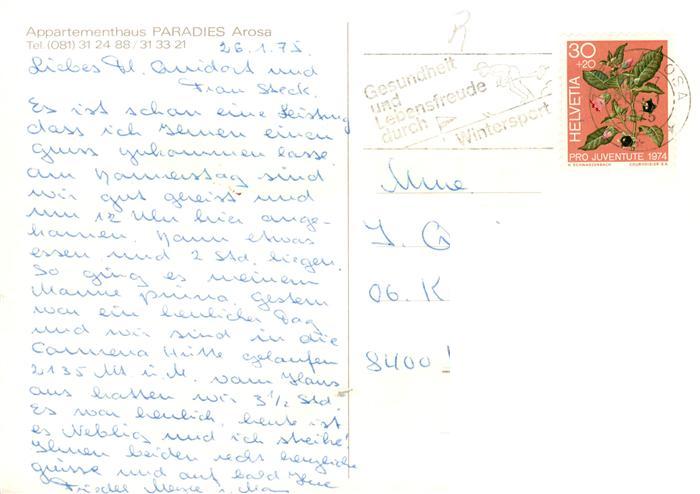 Appartementhaus PARADIES Arosa
Tel. (081) 31 24 88 / 31 33 21
26.1.75.
Liebes Fl. und
Frau Steck.
Es ist schon eine Leistung
dass ich Ihnen einen
gruss zukommen lasse.
am Donnerstag sind
wir gut gereist und
um 12 Uhr hier ange-
kommen. Dann etwas
essen und 2 Std. liegen.
So ging es meinem
Manne prima. Gestern
war ein herrlicher Tag
und wir sind in die
Carmena Hütte gelaufen
2135 Mt ü. M. vom Haus
aus hatten wir 3 1/2 Std.
Es war herrlich, heute ist
es Neblig und ich streike!
Ihnen beiden recht herzliche
grüsse und auf bald Ihre
Friedel
Gesundheit
und
Lebensfreude
durch
Wintersport
AROSA
30
+20
HELVETIA
PRO JUVENTUTE 1974
H. SCHWARZENBACH COURVOISIER S.A.
Mme
J. G
06. K
8400